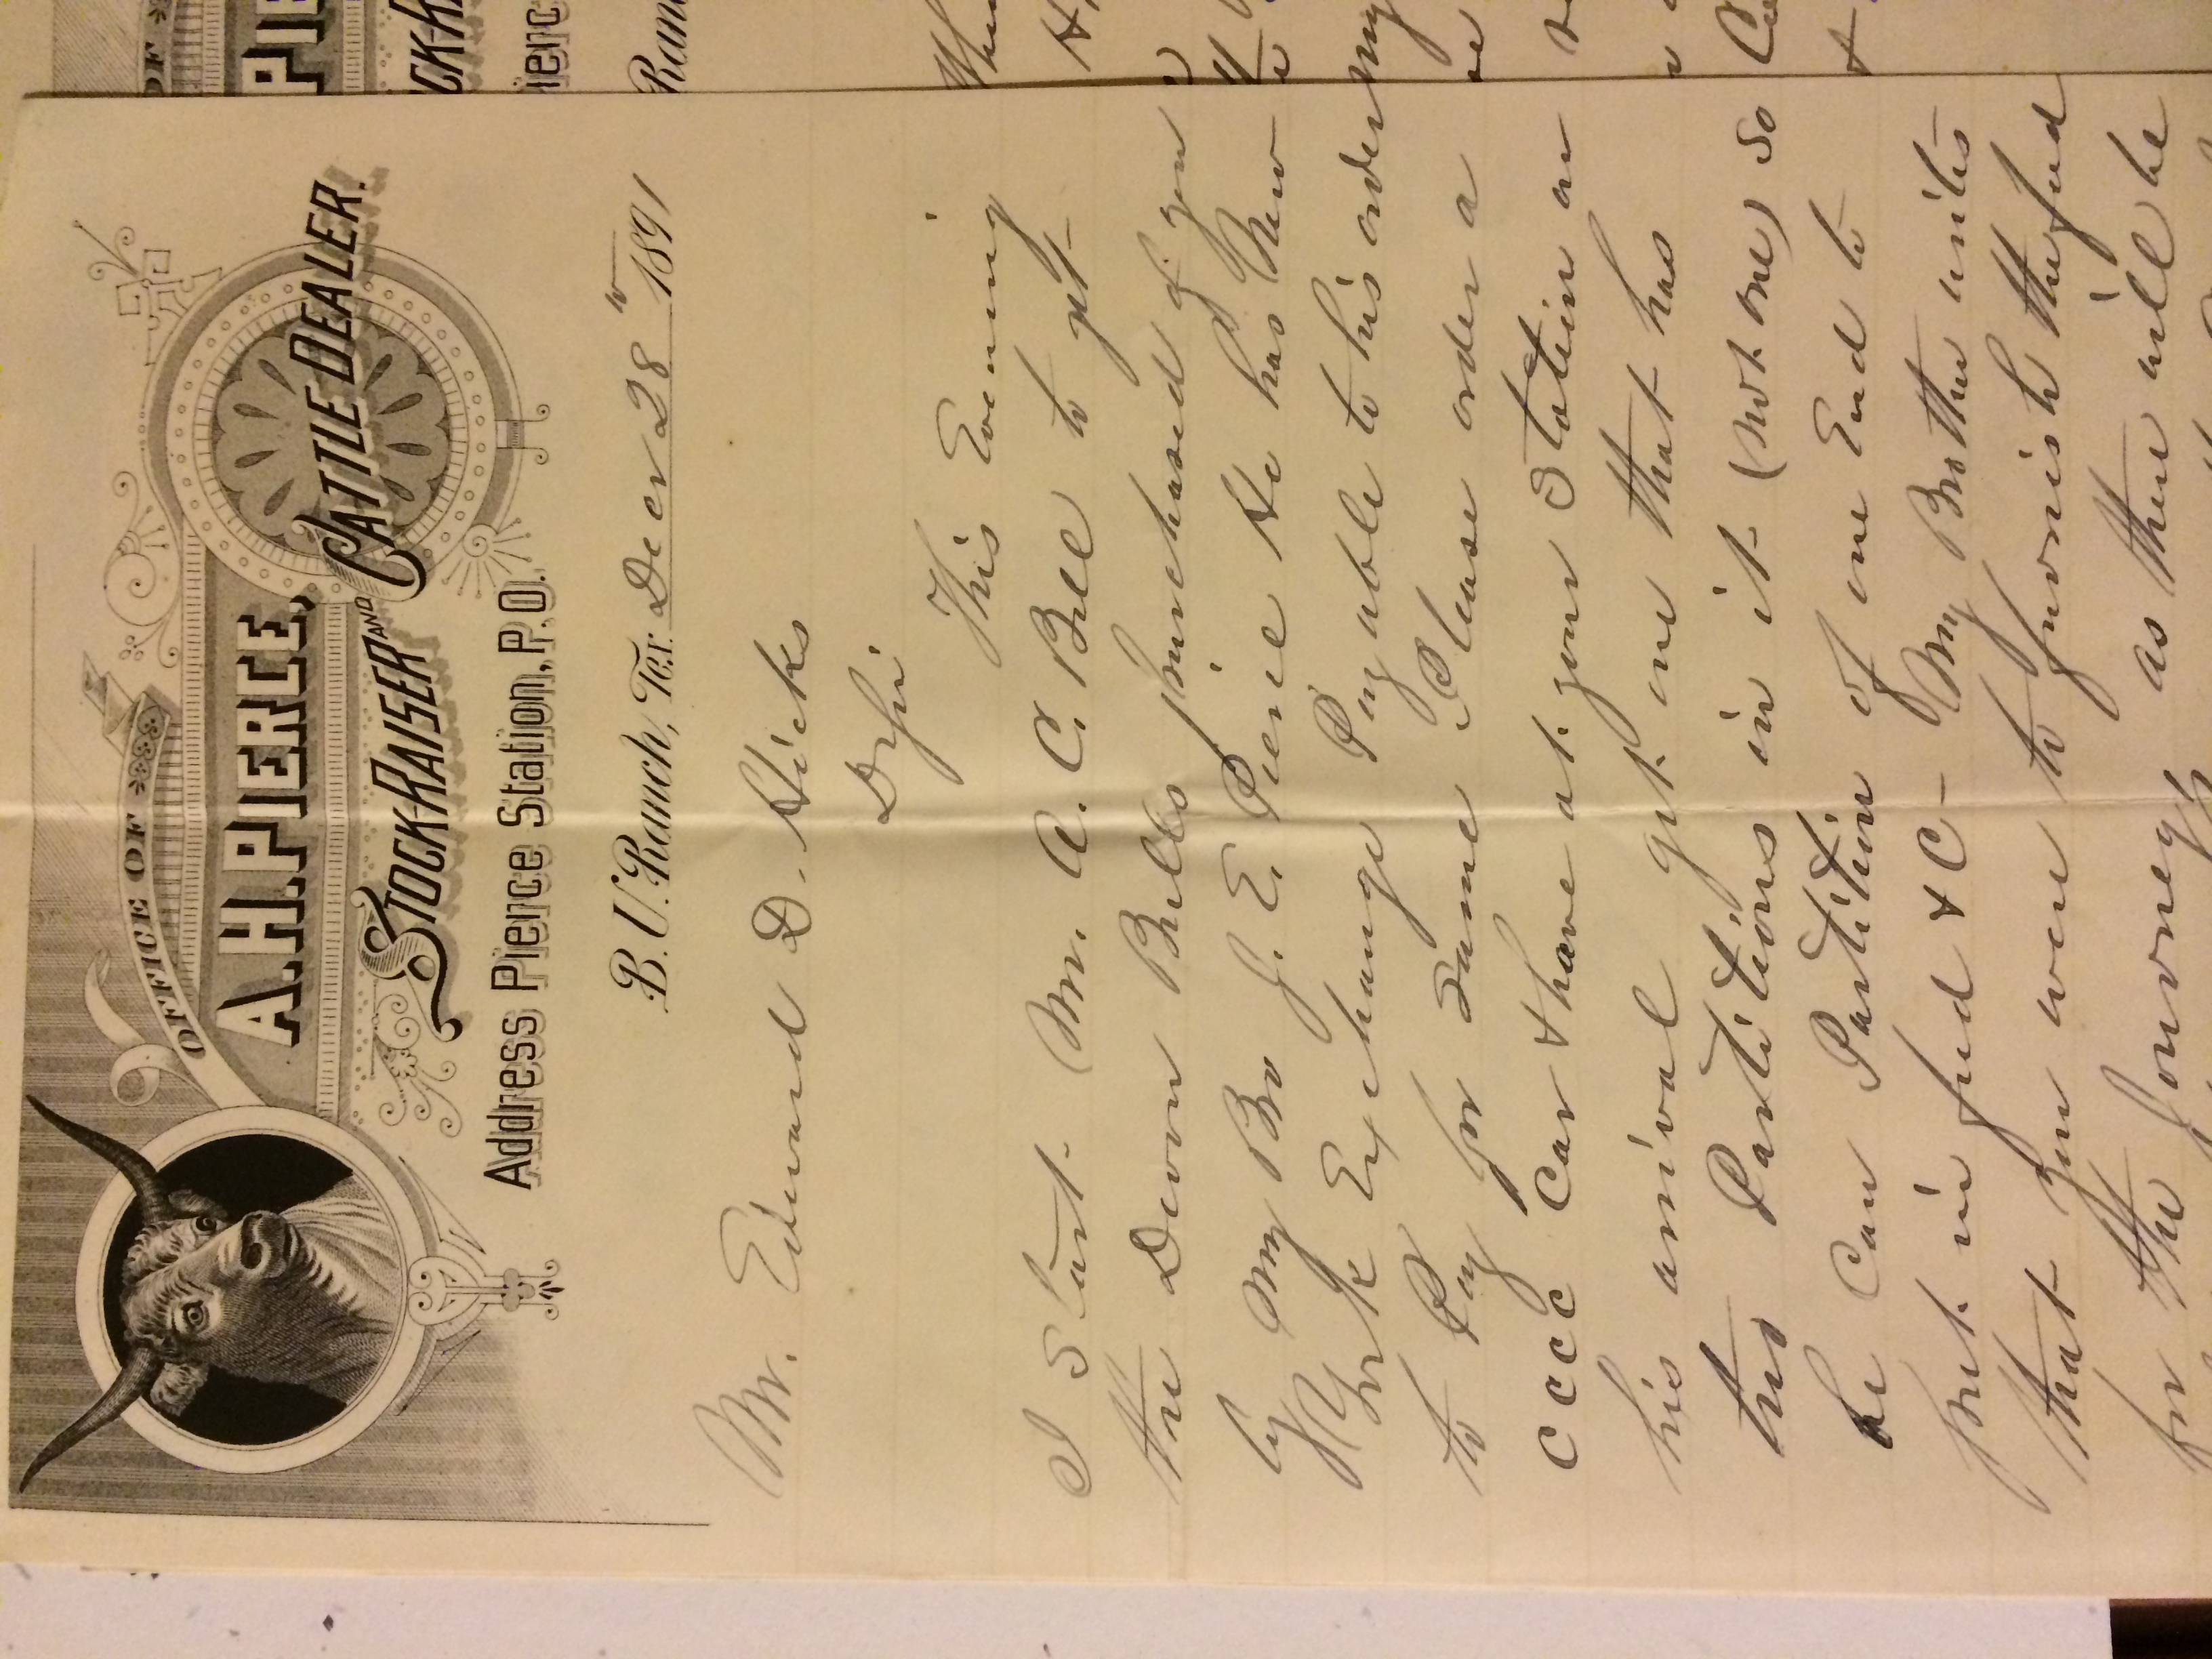 OFFICE OF
A.H. PIERCE,
STOCK-RAISER AND CATTLE DEALER.
Address Pierce Station, P.O.
B.U. Ranch, Tex. Decr 28th 1891
Mr. Edward D. Hicks
D Sir
This Evening
I Start Mr. A. C. Bell to get
the Devon Bulls purchased of you
by my Bro J. E. Pierce He has New
York Exchange Payable to his order
to Pay for Same Please order a
CCCC Car & have at your Station on
his arrival get one that has
two Partitions in it (not one) so
he can Partition of one End to
put in feed &C - My Brother writes
that you were to furnish the feed
for the Journey as there will be